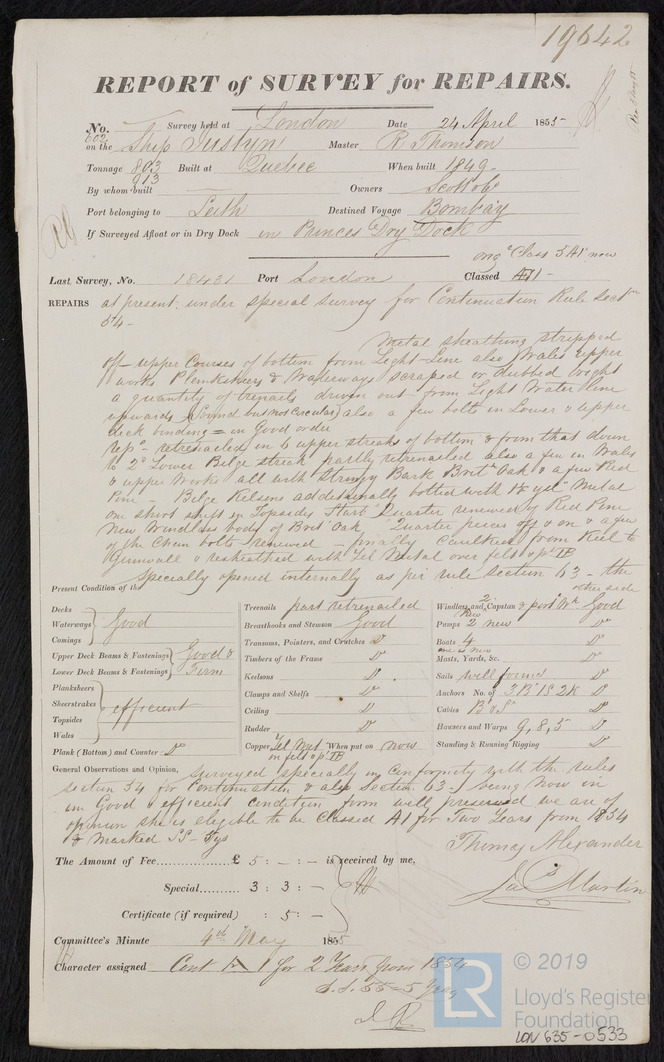 19642
REPORT of SURVEY for REPAIRS.
No. Survey held at London Date 24 April 1855
602 on the Ship Justyn Master R Thomson
Tonnage 803 913 Built at Quebec When built 1849
By whom built — Owners Scott &Co
Port belonging to Leith Destined Voyage Bombay
If Surveyed Afloat or in Dry Dock in Princes Dry Dock
Class 5A1 now
Last Survey, No. 18431 Port London Classed A1
REPAIRS at present under special survey for Continuation Rule Sectn
54-
Metal sheathing stripped
off upper Courses of bottom from Light Line also Wales upper
works Planksheers & Waterways scraped or dubbed bright
a quantity of treenails driven out from Light Water Line
upwards (Sound but not Circular) also a few bolts in Lower & upper
deck binding = in Good order
Repd - retreenailed in 6 upper streaks of bottom & from that down
to 2d Lower Bilge streak partly retreenailed also a few in Wales
& upper Works all with Stringy Bark Brith Oak & a few Red
Pine - Bilge Kelsons additionally bolted with yel Metal
one short shift in Topsides Starbd Quarter renewed of Red Pine
New Windlass body of Brit Oak Quarter pieces off & on & a few
of the Chain bolts renewed - finally caulked from Keel to
Gunwall & resheathed with Yel Metal over felt
Specially opened internally as per rule section 63 - the
other side
Present Condition of the
Decks
Waterways Good
Comings
Upper Deck Beams & Fastenings Good &
Lower Deck Beams & Fastenings Firm
Planksheers
Sheerstrakes
Topsides efficient
Wales
Plank (Bottom) and Counter Do
Treenails part retreenailed
Breasthooks and Stemson Good
Transoms, Pointers, and Crutches Do
Timbers of the Frame Do
Keelsons Do
Clamps and Shelfs Do
Ceiling Do
Rudder Do
Copper Yel Met When put on now
on felt
Windlass and 2 Capstan & port Wh Good
New
Pumps 2 new Do
Boats 4 Do
one is new
Masts, Yards, &c. Do
Sails well found Do
Anchors No. of 3 B 1 S 2 K Do
Cables Do
Hausers and Warps 9, 8, 5 Do
Standing & Running Rigging Do
General Observations and Opinion, surveyed specially in Conformity with the rules
section 54 for Continuation & also Section 63 - being Now in
in Good & efficient Condition from well preserved we are of
opinion she is eligible to be Classed A1 for Two Years from 1854
& Marked SS - 5ys
Thomas Alexander
Jas P Martin
The Amount of Fee............£ 5 : - : - is received by me,
Special......... 3 : 3 : -
Certificate (if required) : 5 : -
Committee's Minute 4th May 1855
Character assigned Cont A 1 for 2 Years from 1854
S.S. 55-5 Years
© 2019
LR
Lloyd's Register
Foundation
LON 635-0533